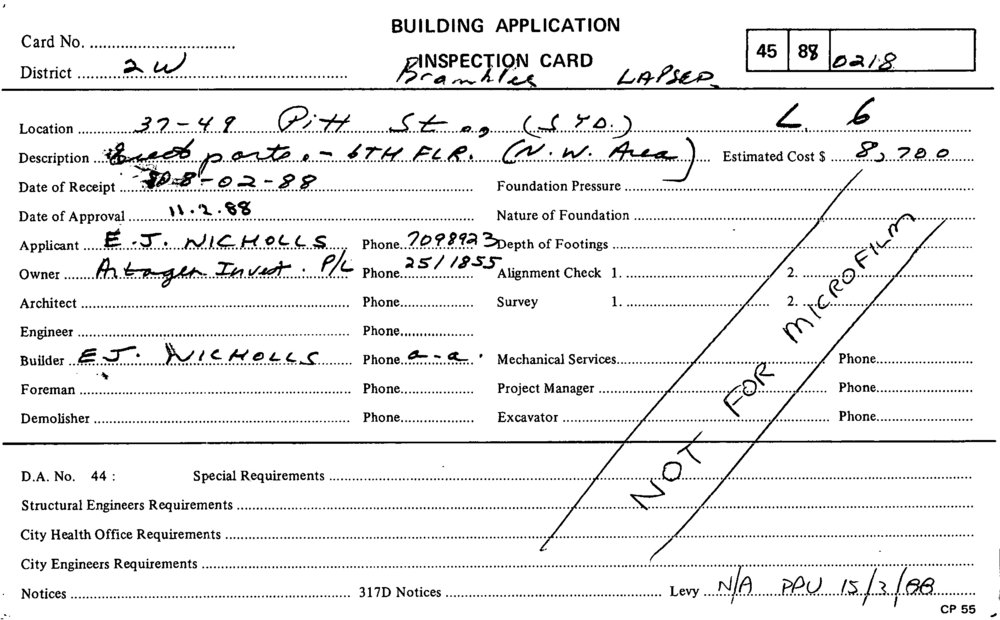 BUILDING APPLICATION
Card No.
INSPECTION CARD
45 88 0218
District 2W
Brambles LAPSED
Location 37-49 Pitt St., (SYD.) L. 6
Description Erect partn. - 6TH FLR. (N.W. Area) Estimated Cost $ 8,700
Date of Receipt 8-02-88 Foundation Pressure
Date of Approval 11.2.88 Nature of Foundation
Applicant E.J. NICHOLLS Phone 7098923 Depth of Footings
Owner Invest. P/L Phone 2511855 Alignment Check 1. 2.
Architect Phone Survey 1. 2.
Engineer Phone
Builder E J. NICHOLLS Phone a-a. Mechanical Services Phone
Foreman Phone Project Manager Phone
Demolisher Phone Excavator Phone
NOT FOR MICROFILM
D.A. No. 44 : Special Requirements
Structural Engineers Requirements
City Health Office Requirements
City Engineers Requirements
Notices 317D Notices Levy N/A PPU 15/3/88
CP 55